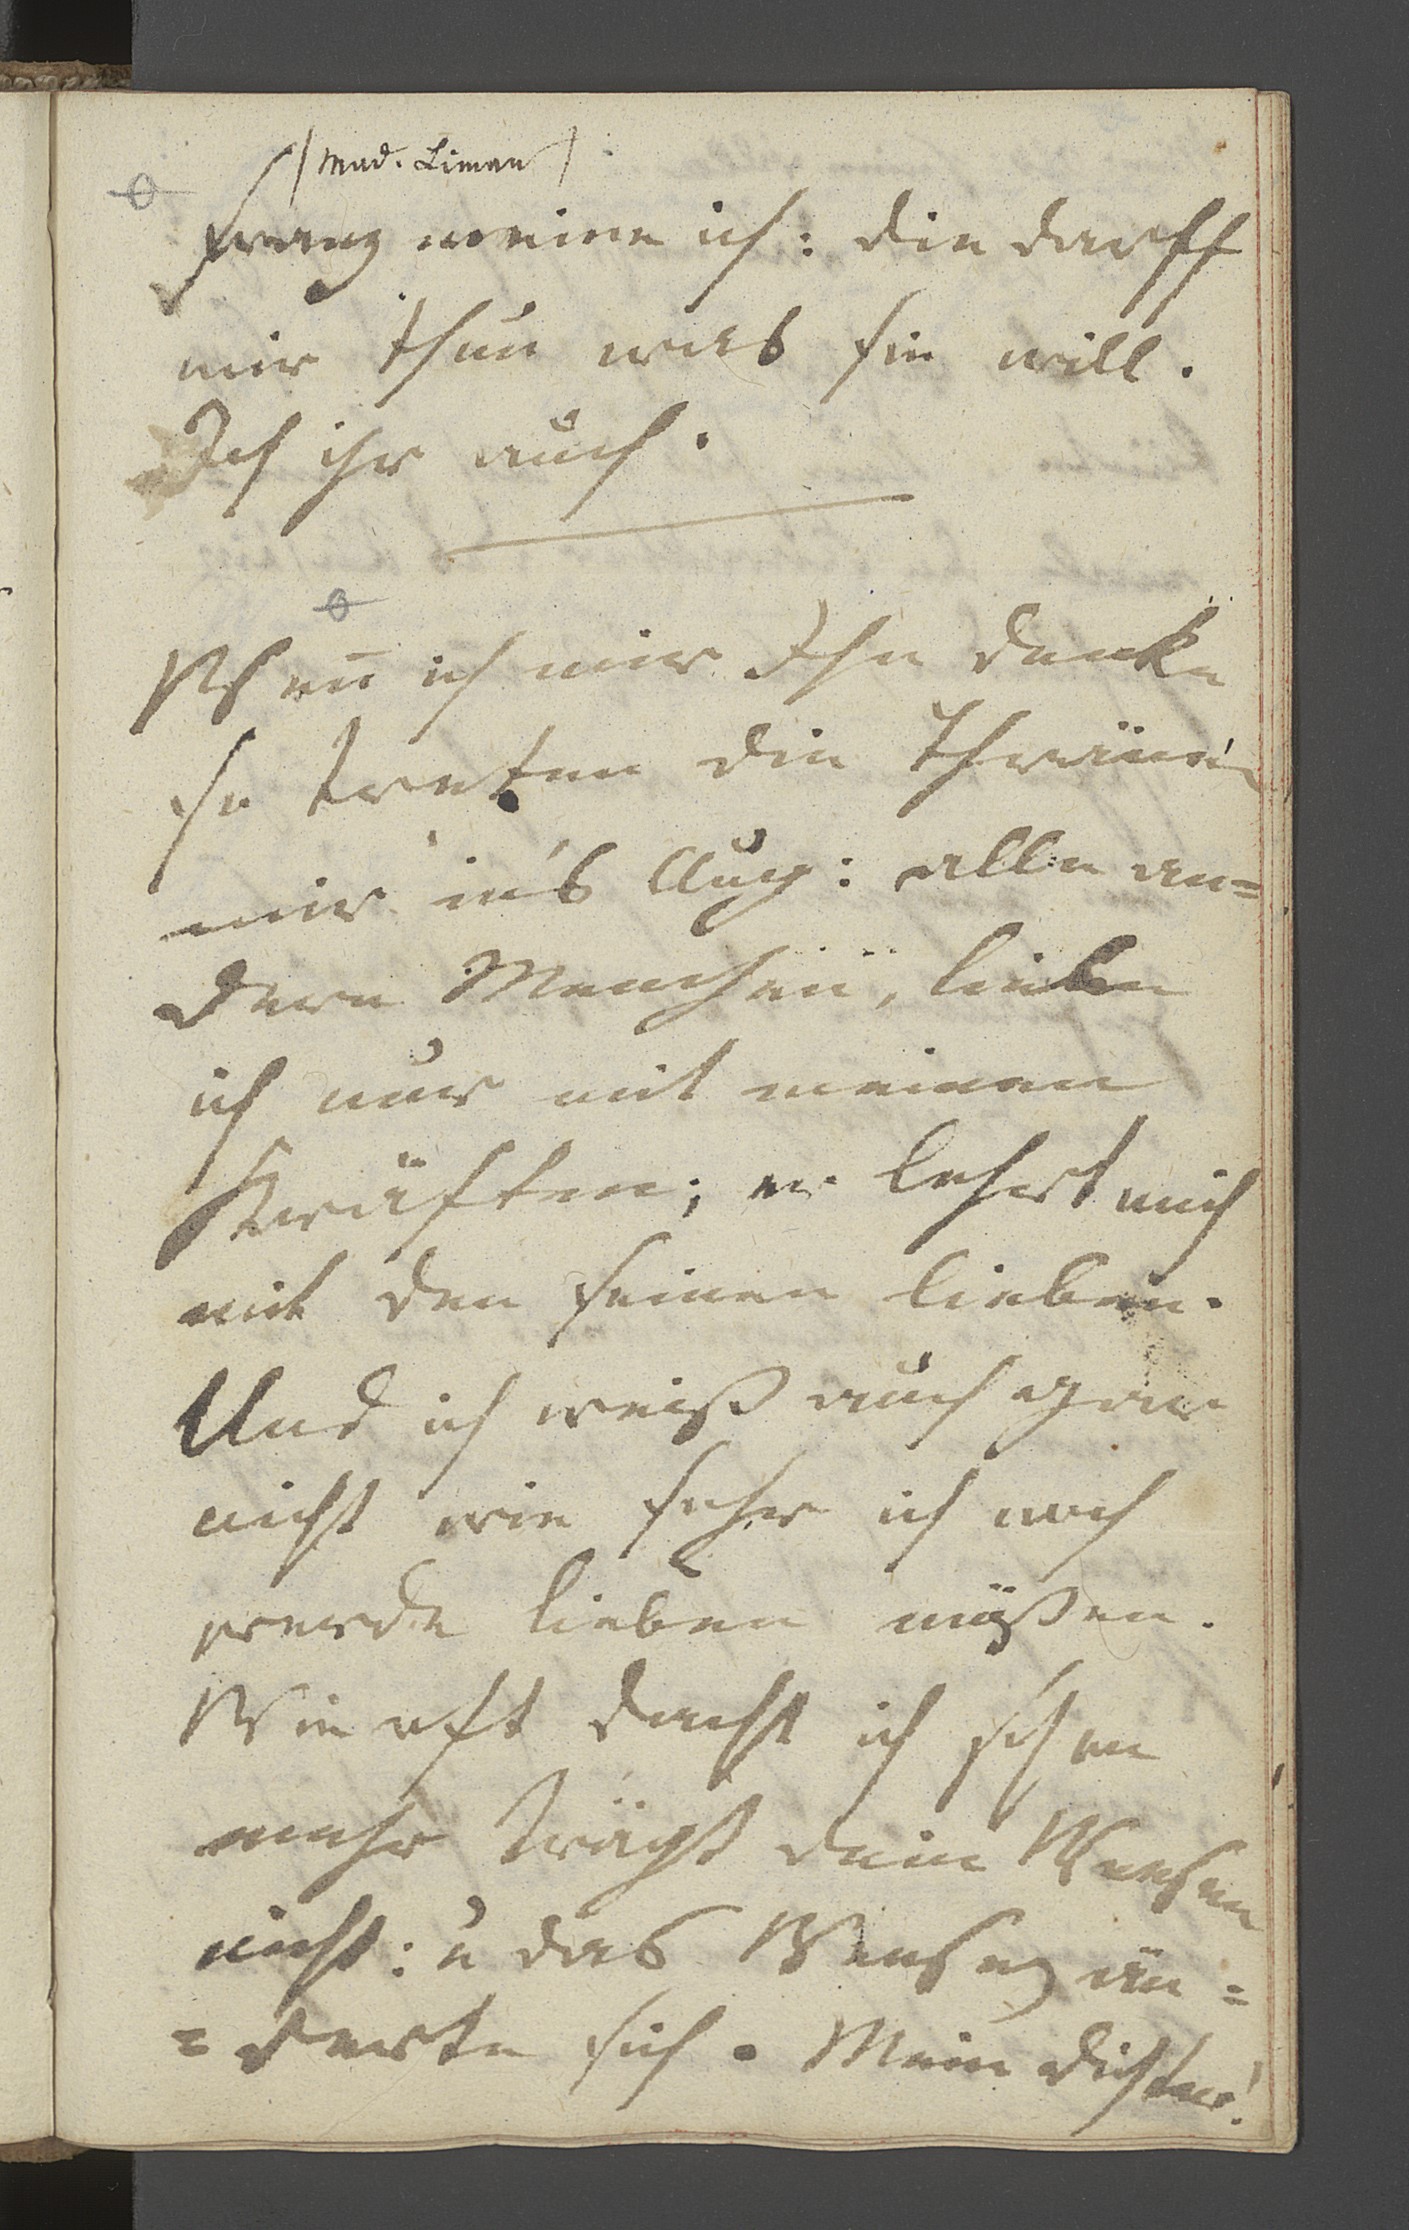 (Mad. Liman)
Frany meine ich: die darff
mir thun was sie will.
Ich ihr auch.
Wen̄ ich mir Ihn denke
so treten die Thränen
mir in's Aug: alle an=
dern Menschen, liebe
ich nur mit meinen
Kräften; er lehrt mich
mit den seinen lieben.
Und ich weiß auch gar
nicht wie sehr ich noch
werde lieben müßen.
Wie oft dacht ich schon
mehr trägst dein Wesen
nicht: u das Wesen än=
=derte sich. Mein Dichter!